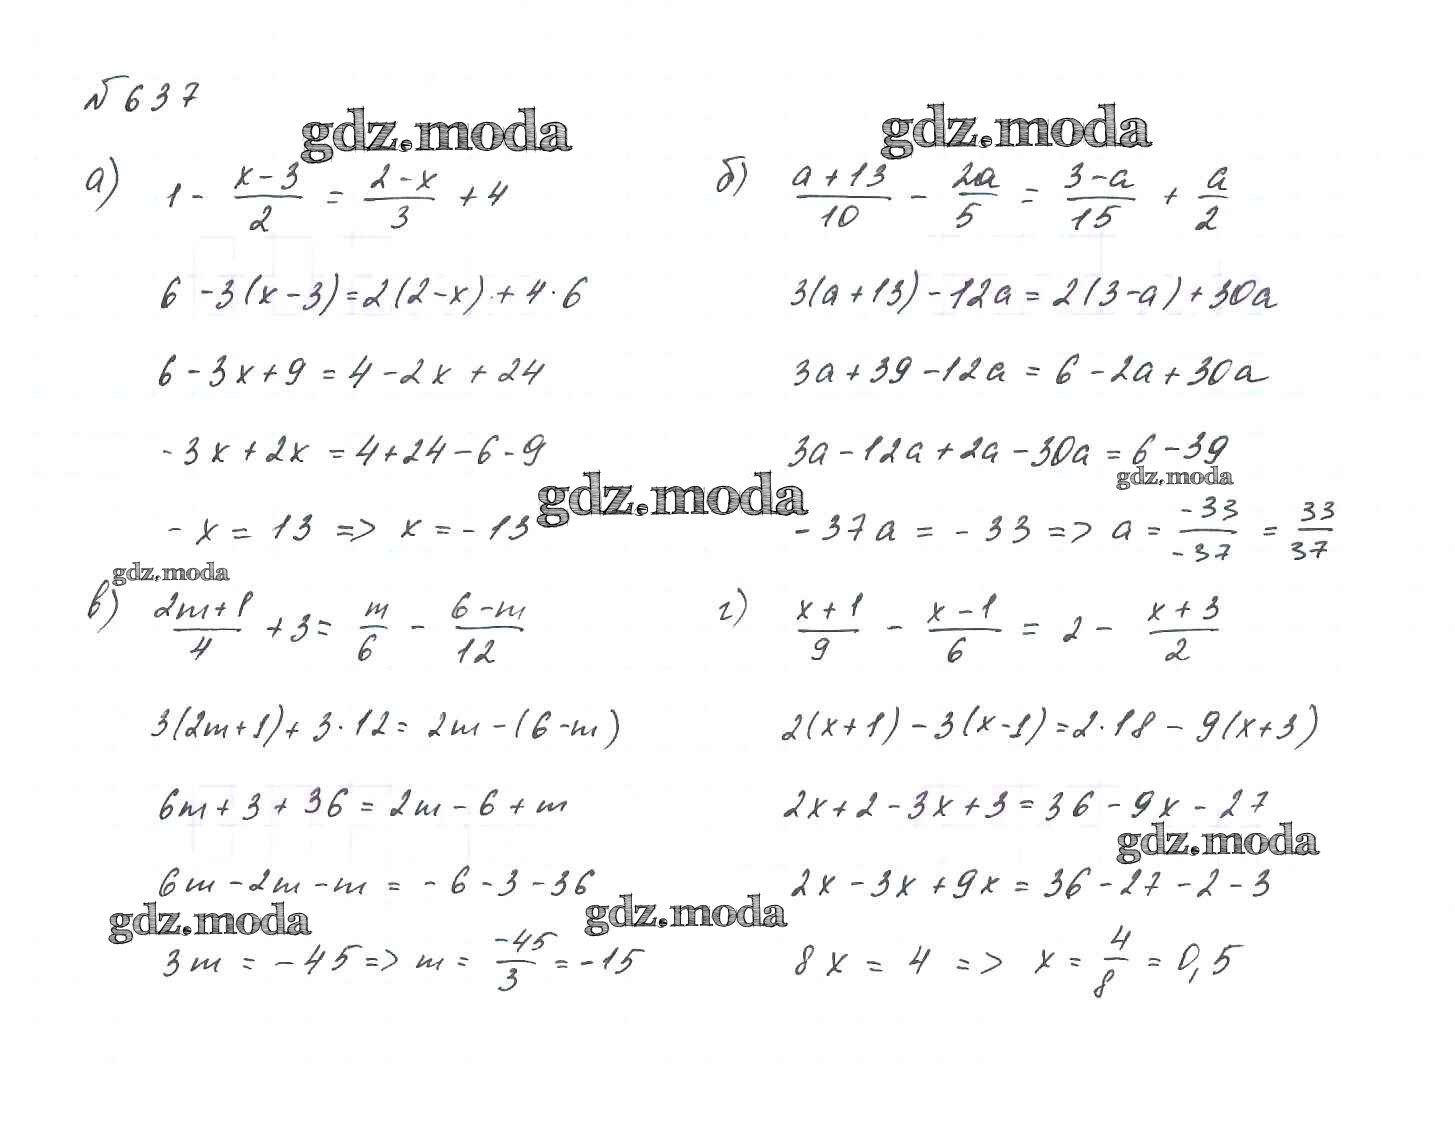 № 637
gdz.moda
gdz.moda
а) 1 - (x-3)/2 = (2-x)/3 + 4
6 - 3(x-3) = 2(2-x) + 4·6
6 - 3x + 9 = 4 - 2x + 24
-3x + 2x = 4 + 24 - 6 - 9
-x = 13 => x = -13
б) (a+13)/10 - 2a/5 = (3-a)/15 + a/2
3(a+13) - 12a = 2(3-a) + 30a
3a + 39 - 12a = 6 - 2a + 30a
3a - 12a + 2a - 30a = 6 - 39
gdz.moda
gdz.moda
-37a = -33 => a = -33/-37 = 33/37
gdz.moda
в) (2m+1)/4 + 3 = m/6 - (6-m)/12
3(2m+1) + 3·12 = 2m - (6-m)
6m + 3 + 36 = 2m - 6 + m
6m - 2m - m = -6 - 3 - 36
gdz.moda
gdz.moda
3m = -45 => m = -45/3 = -15
г) (x+1)/9 - (x-1)/6 = 2 - (x+3)/2
2(x+1) - 3(x-1) = 2·18 - 9(x+3)
2x + 2 - 3x + 3 = 36 - 9x - 27
gdz.moda
2x - 3x + 9x = 36 - 27 - 2 - 3
8x = 4 => x = 4/8 = 0,5